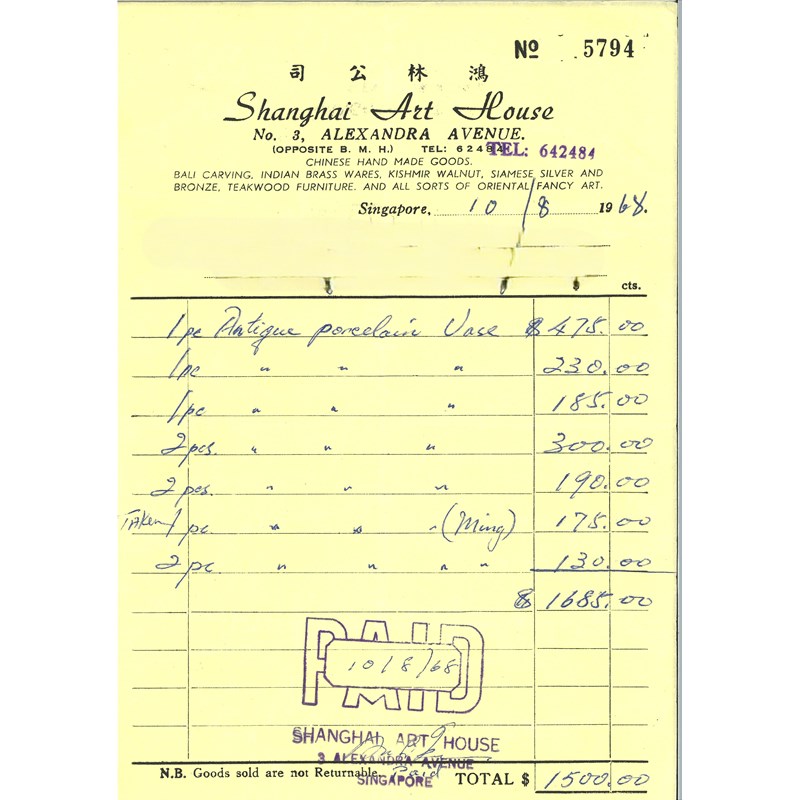 No 5794
司公林鴻
Shanghai Art House
No. 3, ALEXANDRA AVENUE.
(OPPOSITE B. M. H.) TEL: 6248 TEL: 642484
CHINESE HAND MADE GOODS.
BALI CARVING, INDIAN BRASS WARES, KISHMIR WALNUT, SIAMESE SILVER AND
BRONZE, TEAKWOOD FURNITURE. AND ALL SORTS OF ORIENTAL FANCY ART.
Singapore, 10/8 1968.
$ cts.
1 pc Antique porcelain Vase $475.00
1 pc " " " 230.00
1 pc " " " 185.00
2 pcs. " " " 300.00
2 pcs. " " " 190.00
Taken 1 pc. " " " (Ming) 175.00
2 pc " " " " 130.00
$ 1685.00
PAID
10/8/68
SHANGHAI ART HOUSE
3 ALEXANDRA AVENUE
SINGAPORE
N.B. Goods sold are not Returnable. Paid TOTAL $ 1500.00